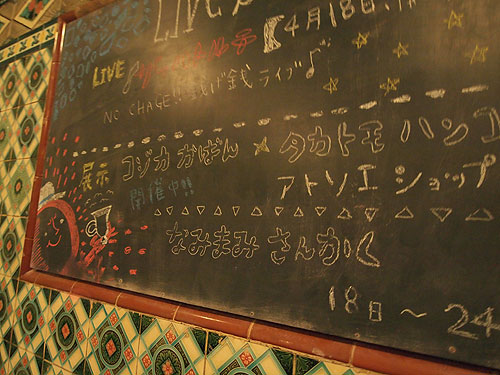 LIVE
【4月18日
LIVE♪
NO CHAGE!!投げ銭ライブ♪
展示 コジカかばん × タカトモハンコ
開催中!! アトリエショップ
なみまみ さんかく
18日 〜 24